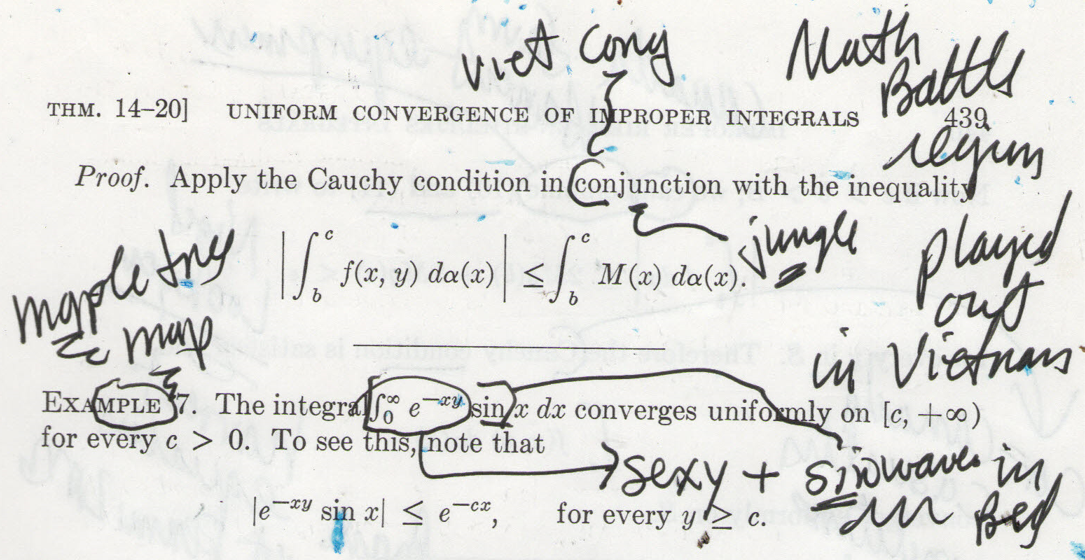 viet cong
Math
Battle
region
played
out
in Vietnam
THM. 14–20] UNIFORM CONVERGENCE OF IMPROPER INTEGRALS 439
Proof. Apply the Cauchy condition in conjunction with the inequality
jungle
|∫_b^c f(x, y) dα(x)| ≤ ∫_b^c M(x) dα(x).
maple tree
map
EXAMPLE 7. The integral ∫_0^∞ e^{−xy} sin x dx converges uniformly on [c, +∞)
for every c > 0. To see this, note that
sexy + sinwaves in
Bed
|e^{−xy} sin x| ≤ e^{−cx}, for every y ≥ c.